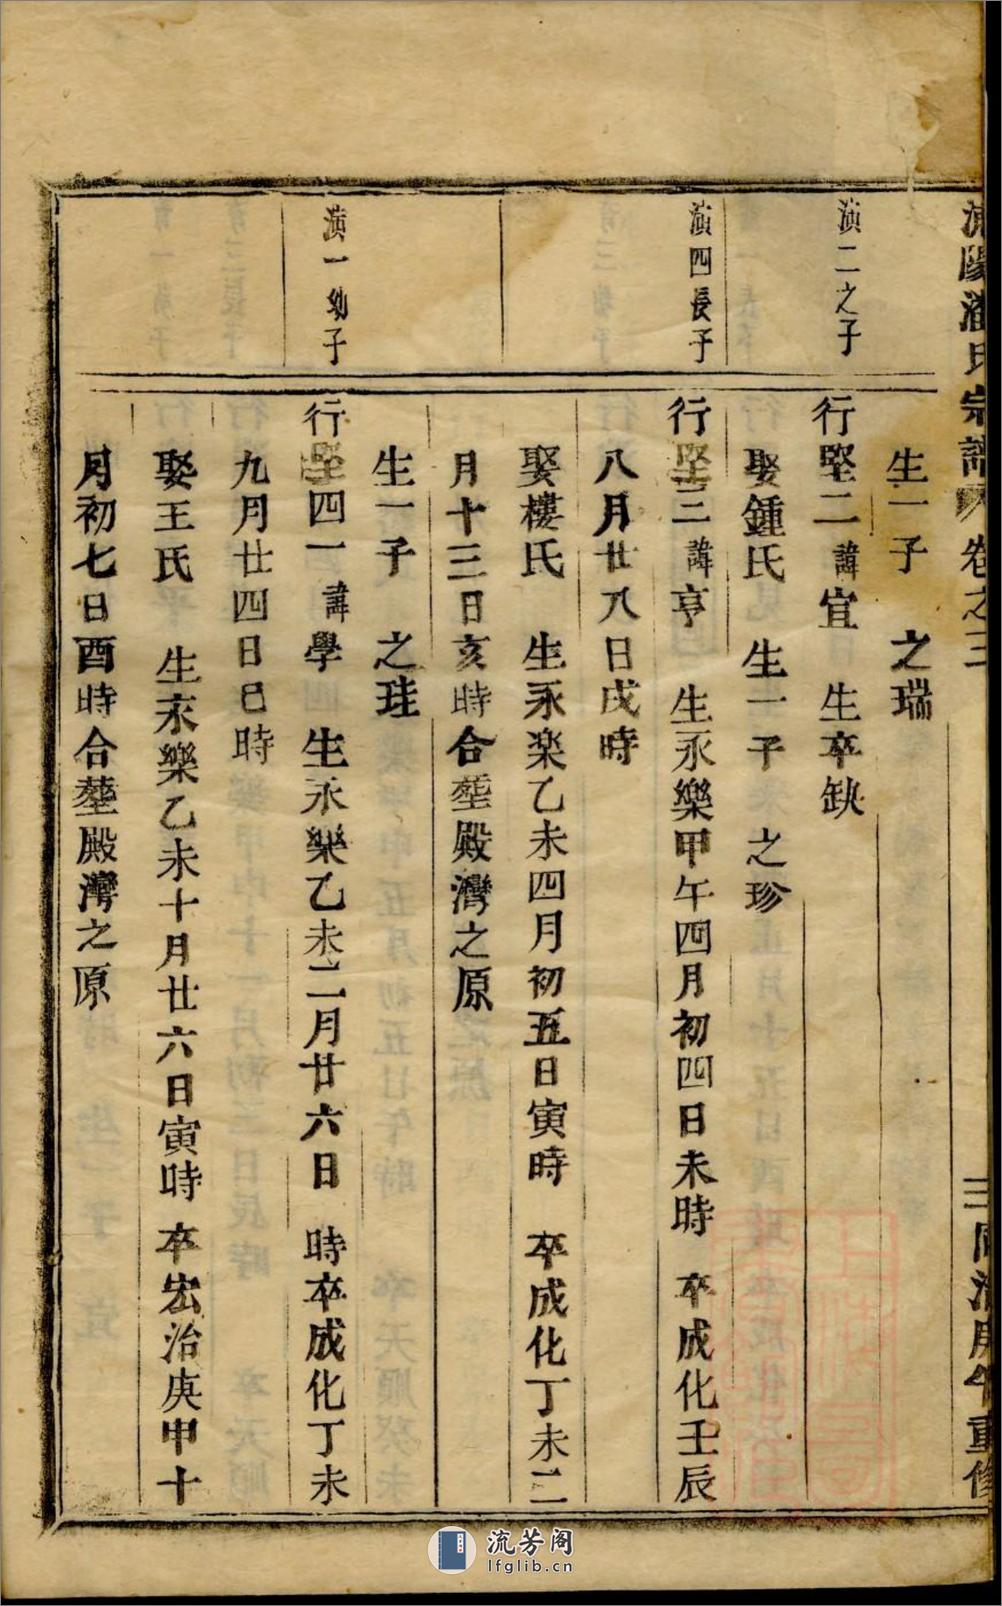 浦陽潘氏宗譜 卷之三
三 同治庚午重修
生一子 之瑞
演二之子
行堅二 諱宜 生卒缺
娶鍾氏 生一子 之珍
演四長子
行堅三 諱亨 生永樂甲午四月初四日未時 卒成化壬辰
八月廿八日戌時
娶樓氏 生永楽乙未四月初五日寅時 卒成化丁未二
月十三日亥時合塟殿灣之原
生一子 之珪
演一幼子
行堅四一 諱學 生永樂乙未二月廿六日 時卒成化丁未
九月廿四日巳時
娶王氏 生永樂乙未十月廿六日寅時 卒宏治庚申十
月初七日酉時合塟殿灣之原
流芳阁
lfglib.cn